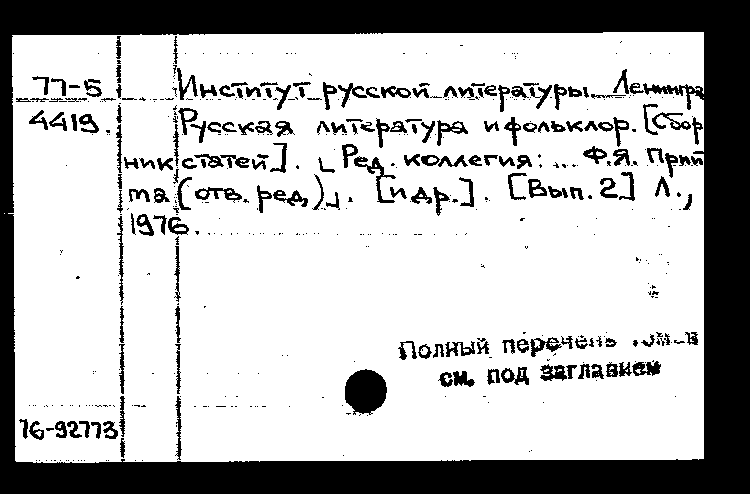 77-5 Институт русской литературы. Ленингра
4419. Русская литература и фольклор. [Сбор
ник статей]. ⌊Ред. коллегия: ... Ф.Я. Прий
ма (отв. ред.)⌋. [и др.]. [Вып. 2] Л.,
1976.
Полный перечень
см. под заглавием
76-92773